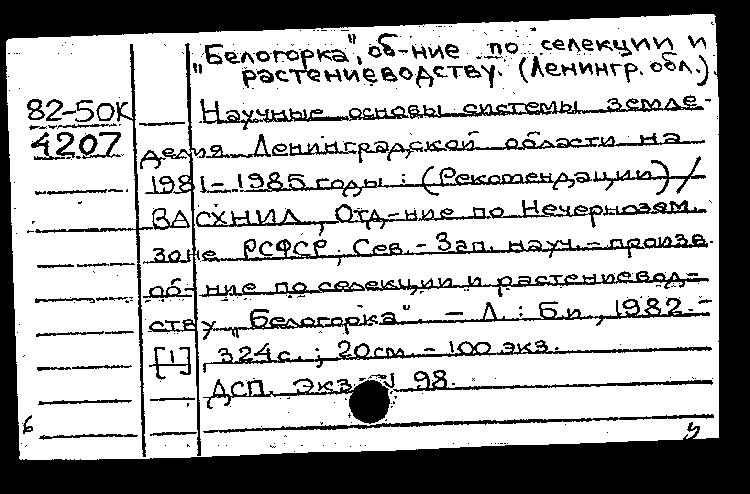 "Белогорка", об-ние по селекции и
растениеводству. (Ленингр. обл.).
82-50К Научные основы системы земле-
4207 делия Ленинградской области на
1981-1985 годы : (Рекомендации) /
ВАСХНИЛ, Отд-ние по Нечернозем.
зоне РСФСР, Сев.-Зап. науч.-произв.
об-ние по селекции и растениевод-
ству "Белогорка". - Л. : Б.и., 1982.-
[1], 324 с. ; 20 см. - 100 экз.
ДСП. Экз. N 98.
б у